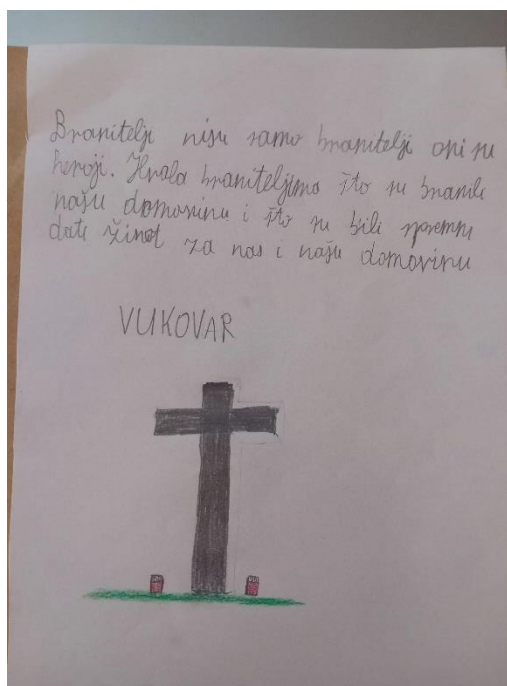 Branitelji nisu samo branitelji oni su
heroji. Hvala braniteljima što su branili
našu domovinu i što su bili spremni
dati život za nas i našu domovinu
VUKOVAR